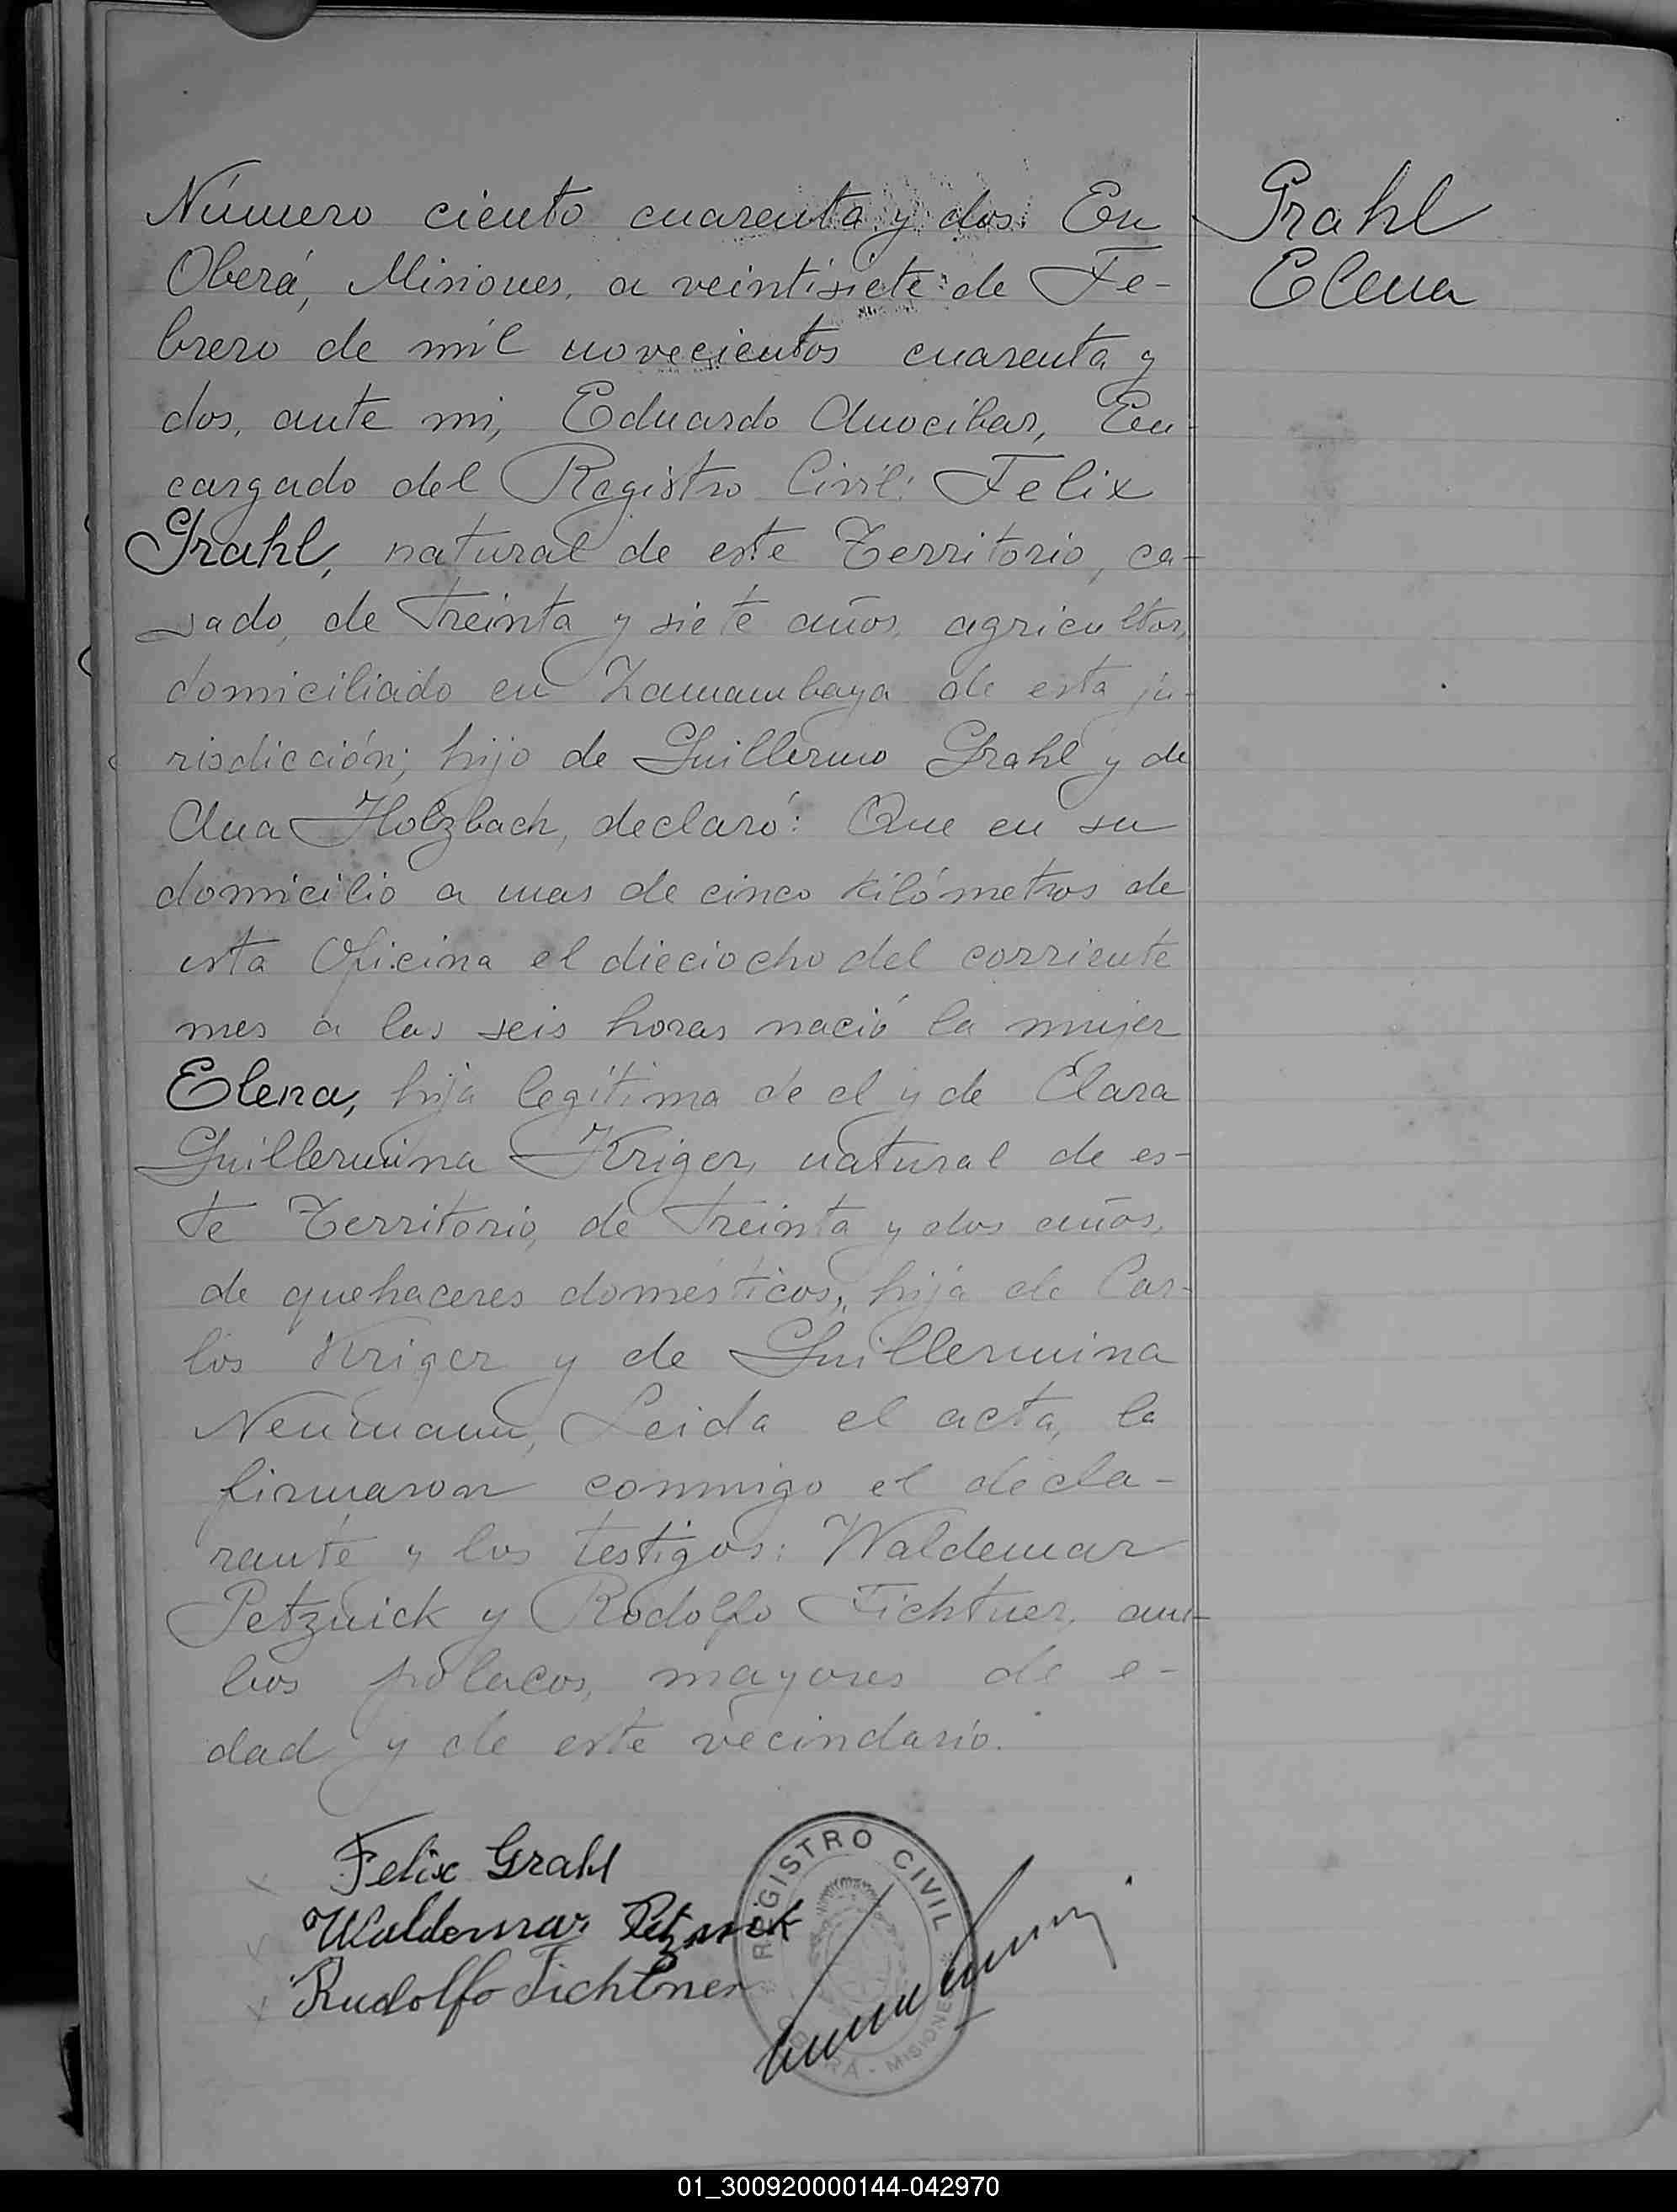 Número ciento cuarenta y dos. En
Oberá, Misiones, a veintisiete de Fe-
brero de mil novecientos cuarenta y
dos, ante mi, Eduardo Anocibar, En-
cargado del Registro Civil: Felix
Grahl, natural de este Territorio, ca-
sado, de treinta y siete años, agricultor,
domiciliado en Zamambaya de esta ju-
risdicción; hijo de Guillermo Grahl y de
Ana Holzbach, declaró: Que en su
domicilio a mas de cinco kilómetros de
esta Oficina el dieciocho del corriente
mes a las seis horas nació la mujer
Elena, hija legítima de el y de Clara
Guillermina Kriger, natural de es-
te Territorio, de treinta y dos años,
de quehaceres domésticos, hija de Car-
los Kriger y de Guillermina
Neumann, Leida el acta, la
firmaron conmigo el decla-
rante y los testigos: Waldemar
Petznick y Rodolfo Fichtner, am-
bos polacos, mayores de e-
dad y de este vecindario.
Grahl
Elena
Felix Grahl
Waldemar Petznick
Rudolfo Fichtner
REGISTRO CIVIL
OBERÁ - MISIONES
01_300920000144-042970